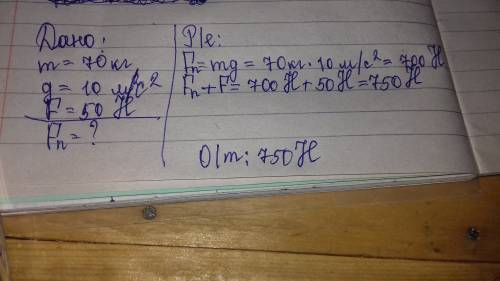 Дано:
m = 70 кг
g = 10 м/с²
F = 50 Н
Fп = ?
Р/е:
Fп = mg = 70 кг · 10 м/с² = 700 Н
Fп + F = 700 Н + 50 Н = 750 Н
О/т: 750 Н